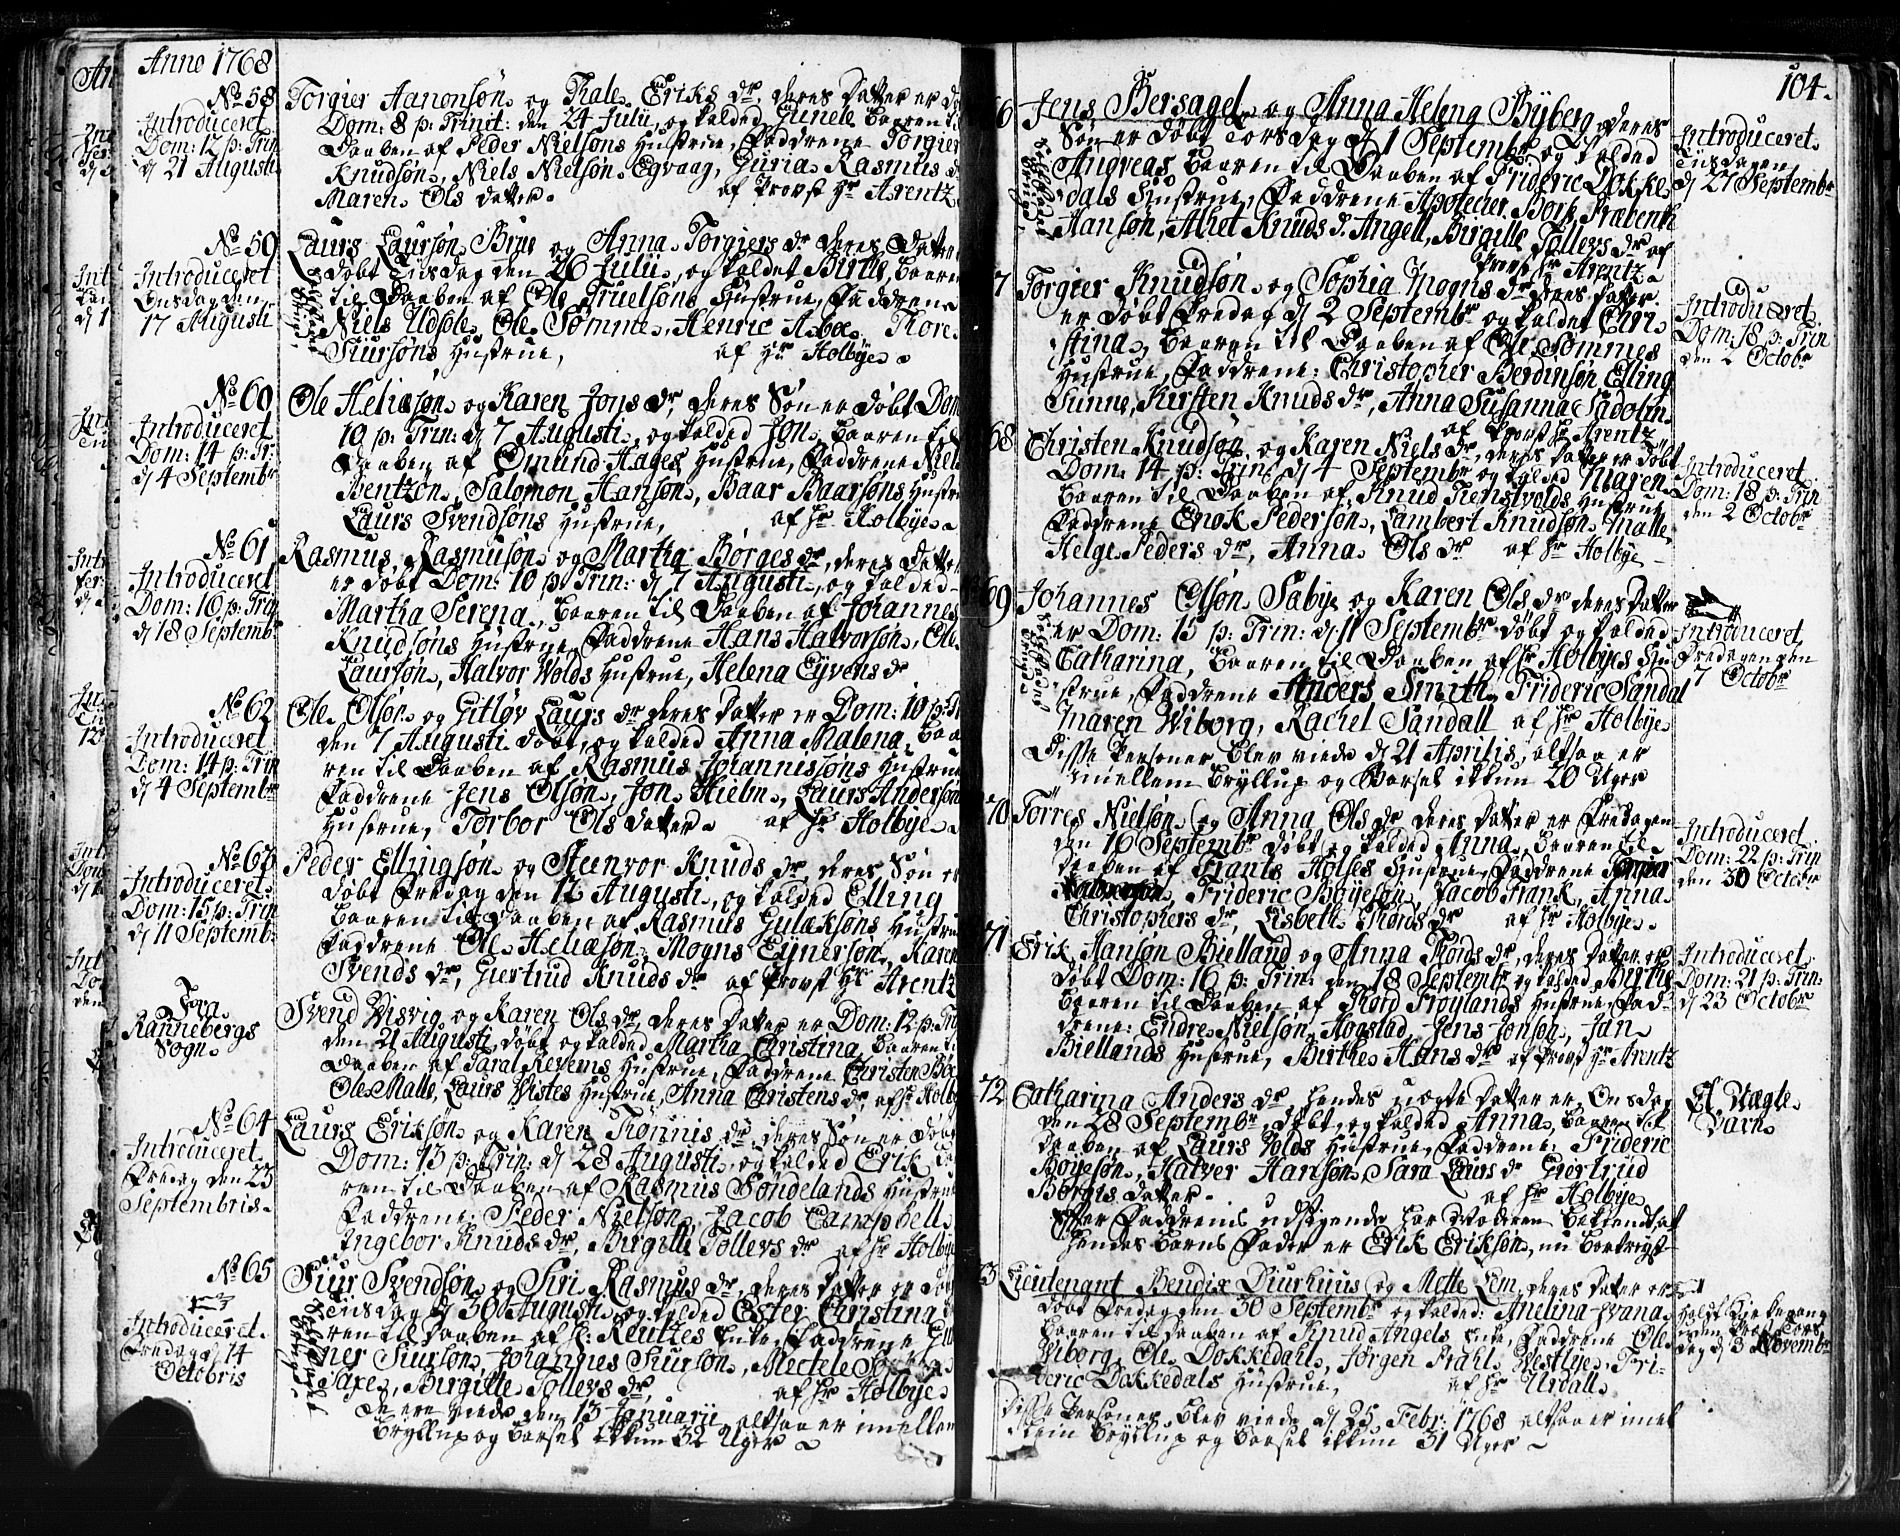 Anno 1768
No 58
Introduceret
Dom: 12 p: Trin
d 21 Augusti
Torgier Aanonsøn og Kale Eriks dr, deres datter er
Dom: 8 p: Trinit: den 24 Julii, og kalded Gunele baaren til
Daaben af Peder Nielsøns Hustrue, Faddrene Torgier
Knudsøn, Niels Nielsøn Egvaag, Guria Rasmus
Maren Ols datter. af Provst Hr Arentz
No 59
Introduceret
Onsdag den
17 Augusti
Laurs Laursøn Brue og Anna Torgiers dr deres datter
døbt Tiisdag den 26 Julii, og kaldet Birthe, baaren
til Daaben af Ole Truelsøns Hustrue, Faddrene
Niels Udsole, Ole Sømme, Henric Aboe, Tore
Siursøns Hustrue, af Hr Holbye
No 60
Introduceret
Dom: 14 p: Tr:
d 4 Septembr
Ole Heliæsøn og Karen Jons dr, deres Søn er døbt Dom
10 p: Trin: d 7 Augusti, og kalded Jon, baaren til
Daaben af Omund Hages Hustrue, Faddrene Niels
Bentzen, Salomon Hansøn, Baar Baarsøns Hustrue
Laurs Svendsøns Hustrue, af Hr Holbye
No 61
Introduceret
Dom: 16 p: Trin
d 18 Septemb:
Rasmus Rasmusøn og Martha Børges dr, deres datter
er døbt Dom: 10 p: Trin: d 7 Augusti, og kalded
Martha Serena, baaren til Daaben af Johannes
Knudsøns Hustrue, Faddrene Hans Halvorsøn, Ole
Laursøn, Halvor Volds Hustrue, Helena Eyvens dr
No 62
Introduceret
Dom: 14 p: Trin
d 4 Septembr
Ole Olsøn og Gitløv Laurs dr deres datter er Dom: 10 p: Tr
den 7 Augusti døbt, og kalded Anna Malena, baa
ren til Daaben af Rasmus Johannissøns Hustrue
Faddrene Jens Olsøn, Jon Hielm, Laurs Andersøns
Hustrue, Torbor Ols datter af Hr Holbye
No 63
Introduceret
Dom: 15 p: Trin
d 11 Septemb:
Peder Ellingsøn og Steenvor Knuds dr, deres Søn er
døbt Fredag den 12 Augusti, og kalded Elling
baaren til Daaben af Rasmus Gulaksøns Hustrue
Faddrene Ole Heliæsøn, Mogns Eynersøn, Karen
Svends dr, Giertrud Knuds dr af Provst Hr Arentz
Fra
Rannebergs
Sogn
Svend Visvig og Karen Ols dr, deres datter er Dom: 12 p: Tr
den 21 Augusti døbt og kalded Martha Christina, baaren til
Daaben af Taral Revems Hustrue, Faddrene Christen Bøe
Ole Malle, Laurs Vistes Hustrue, Anna Christens dr, af Hr Holbye
No 64
Introduceret
Fredag den 23
Septembris
Laurs Eriksøn og Karen Tønnis dr, deres Søn er døbt
Dom: 13 p: Trin: d 28 Augusti, og kalded Erik baa
ren til Daaben af Rasmus Søndelands Hustrue
Faddrene: Peder Nielsøn, Jacob Campbell
Ingebor Knuds dr, Birgitte Tollevs dr af Hr Holbye
No 65
Introduceret
Fredag d 14
Octobris
Siur Svendsøn og Siri Rasmus dr, deres datter er døbt
Tiisdag d 30 Augusti, og kaldet Ester Christina
ren til Daaben af Reutzes Enke, Faddrene
ner Siursøn, Johannes Siursøn, Mectele
Saxe, Birgitte Tollevs dr, af Hr Holbye
De ere viede den 13 Januarii altsaa er imellem
Bryllup og Barsel ikkun 32 Uger
104.
6
Jens Bersagel og Anna Helena Byberg, deres
Søn er døbt Torsdag d 1 Septembr og kaldet
Andreas, baaren til Daaben af Frideric Dokke
dals Hustrue, Faddrene Apotecher Bork, Præbenth
Hansøn, Alhet Knuds d. Angell, Birgitte Tollevs dr af
Provst Hr Arentz
Introduceret
Tiisdagen
d 27 Septembr
7
Torgier Knudsøn og Sophia Mogns dr deres datter
er døbt Fredag d 2 Septembr og kaldet Chri
stina, baaren til Daaben af Ole Sømmes
Hustrue, Faddrene: Christopher Berdinsøn, Elling
Sunne, Kirsten Knuds dr, Anna Susanna Sadolin
af Provst Hr Arentz
Introduceret
Dom: 18 p: Trin
den 2 Octobr
68
Christen Knudsøn og Karen Niels dr, deres datter er døbt
Dom: 14 p: Trin d 4 Septembr og kaldet Maren
baaren til Daaben af Knud Tienstvolds Hustrue
Faddrene Enok Pedersøn, Lambert Knudsøn Malle
Helge Peders dr, Anna Ols dr af Hr Holbye
Introduceret
Dom: 18 p: Trin
den 2 Octobr
69
Johannes Olsøn Sabye og Karen Ols dr deres datter
er Dom: 15 p: Trin: d 11 Septembr døbt og kaldet
Catharina, baaren til Daaben af Hr Holbyes Hu
strue, Faddrene Anders Smith, Frideric Sandal
Maren Wiborg, Rachel Sandall af Hr Holbye
Disse Personer blev viede d 21 Aprilis, altsaa er
imellem Bryllup og Barsel ikkun 20 Uger
Introduceret
Fredagen den
7 Octobr
70
Tørres Nielsøn og Anna Ols dr deres datter er Fredagen
den 16 Septembr døbt og kaldet Anna, baaren til
Daaben af Frants Holses Hustrue, Faddrene
Frideric Bøyesøn, Jacob Frank, Anna
Christophers dr, Lisbeth Thords dr af Hr Holbye
Introduceret
Dom: 22 p: Trin
den 30 Octobr
71
Erik Hansøn Bielland og Anna Thords dr, deres datter er
døbt Dom: 16 p: Trin: den 18 Septembr og kaldet Birthe
baaren til Daaben af Thord Frøylands Hustrue, Fad
drene: Endre Nielsøn Hogstad, Jens Jonsøn, Jan
Biellands Hustrue, Birthe Hans dr af Provst Hr Arentz
Introduceret
Dom: 21 p: Trin:
d 23 Octobr
72
Catharina Anders dr, hendes uægte datter er Onsdag
den 28 Septembr døbt, og kaldet Anna, baaren til
Daaben af Laurs Volds Hustrue, Faddrene: Frideric
Bøyesøn, Halver Hansøn, Sara Laurs dr Giertrud
Børgis datter. af Hr Holbye
Efter Faddrenis udsigende har Moderen bekiendt at
hendes Barns Fader er Erik Eriksøn, nu bortreyst
Et Uægte
Barn
3
Lieutenant Bendix Diurhuus og Mette Lem, deres datter er
døbt Fredag den 30 Septembr og kaldet: Anelina
baaren til Daaben af Knud Angels Enke, Faddrene Ole
Wiborg, Ole Dokkedahl, Jørgen Prahl, Westlye, Fri
deric Dokkedals Hustrue, af Hr Urdall
Disse Personer blev viede d 25 Febr: 1768 altsaa er imel
lem Bryllup og Barsel ikkun 31 Uger
holdt Kirkegang
dag d 3 Novembr